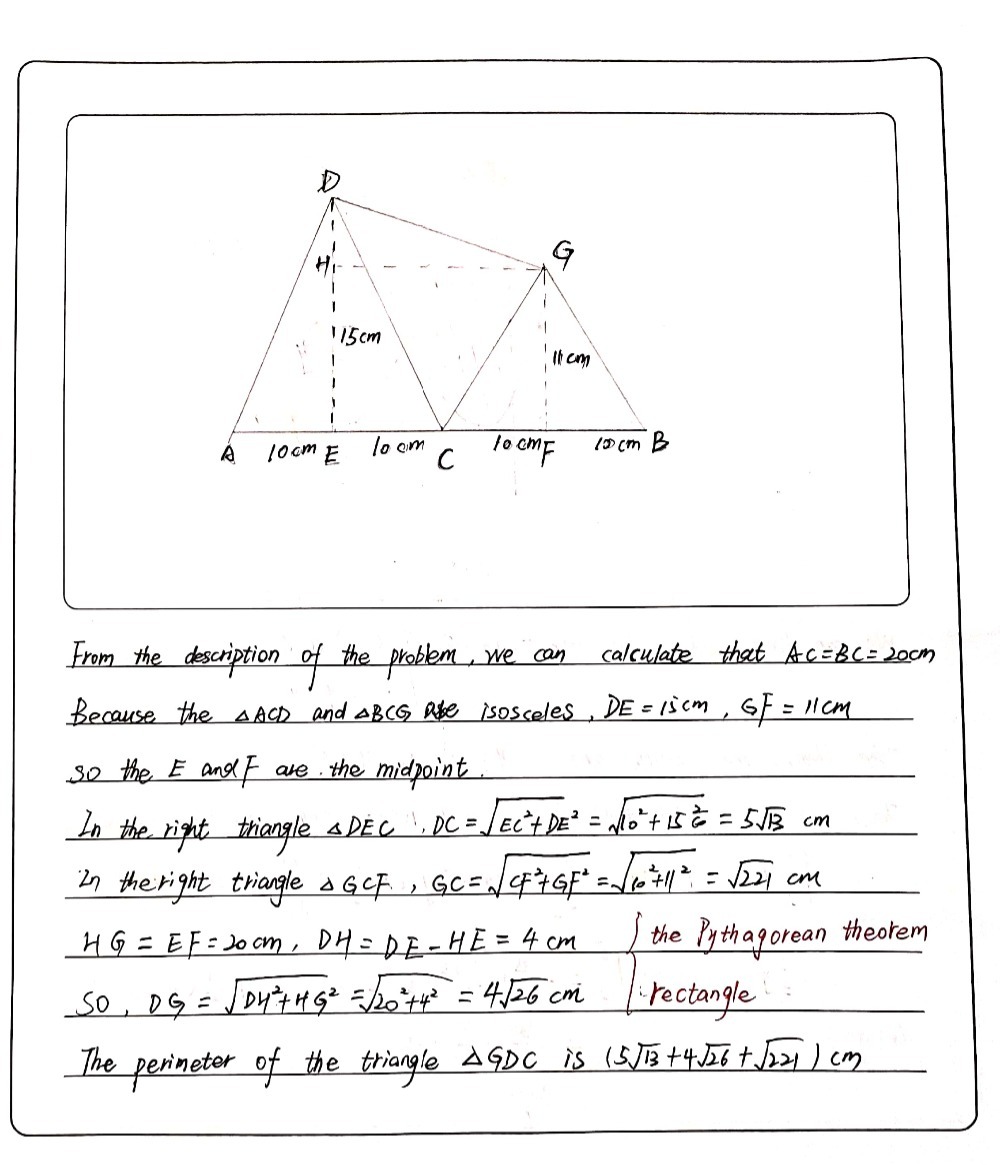 D
G
H
15cm
11 cm
A 10cm E 10cm C 10cm F 10cm B
From the description of the problem, we can calculate that AC=BC=20cm
Because the △ACD and △BCG are isosceles, DE=15cm, GF=11cm
so the E and F are the midpoint.
In the right triangle △DEC, DC=√EC²+DE² = √10²+15² = 5√13 cm
In the right triangle △GCF, GC=√CF²+GF² = √10²+11² = √221 cm
HG = EF=20cm, DH=DE-HE=4cm { the Pythagorean theorem
So, DG = √DH²+HG² = √20²+4² = 4√26 cm rectangle
The perimeter of the triangle △GDC is (5√13+4√26+√221) cm